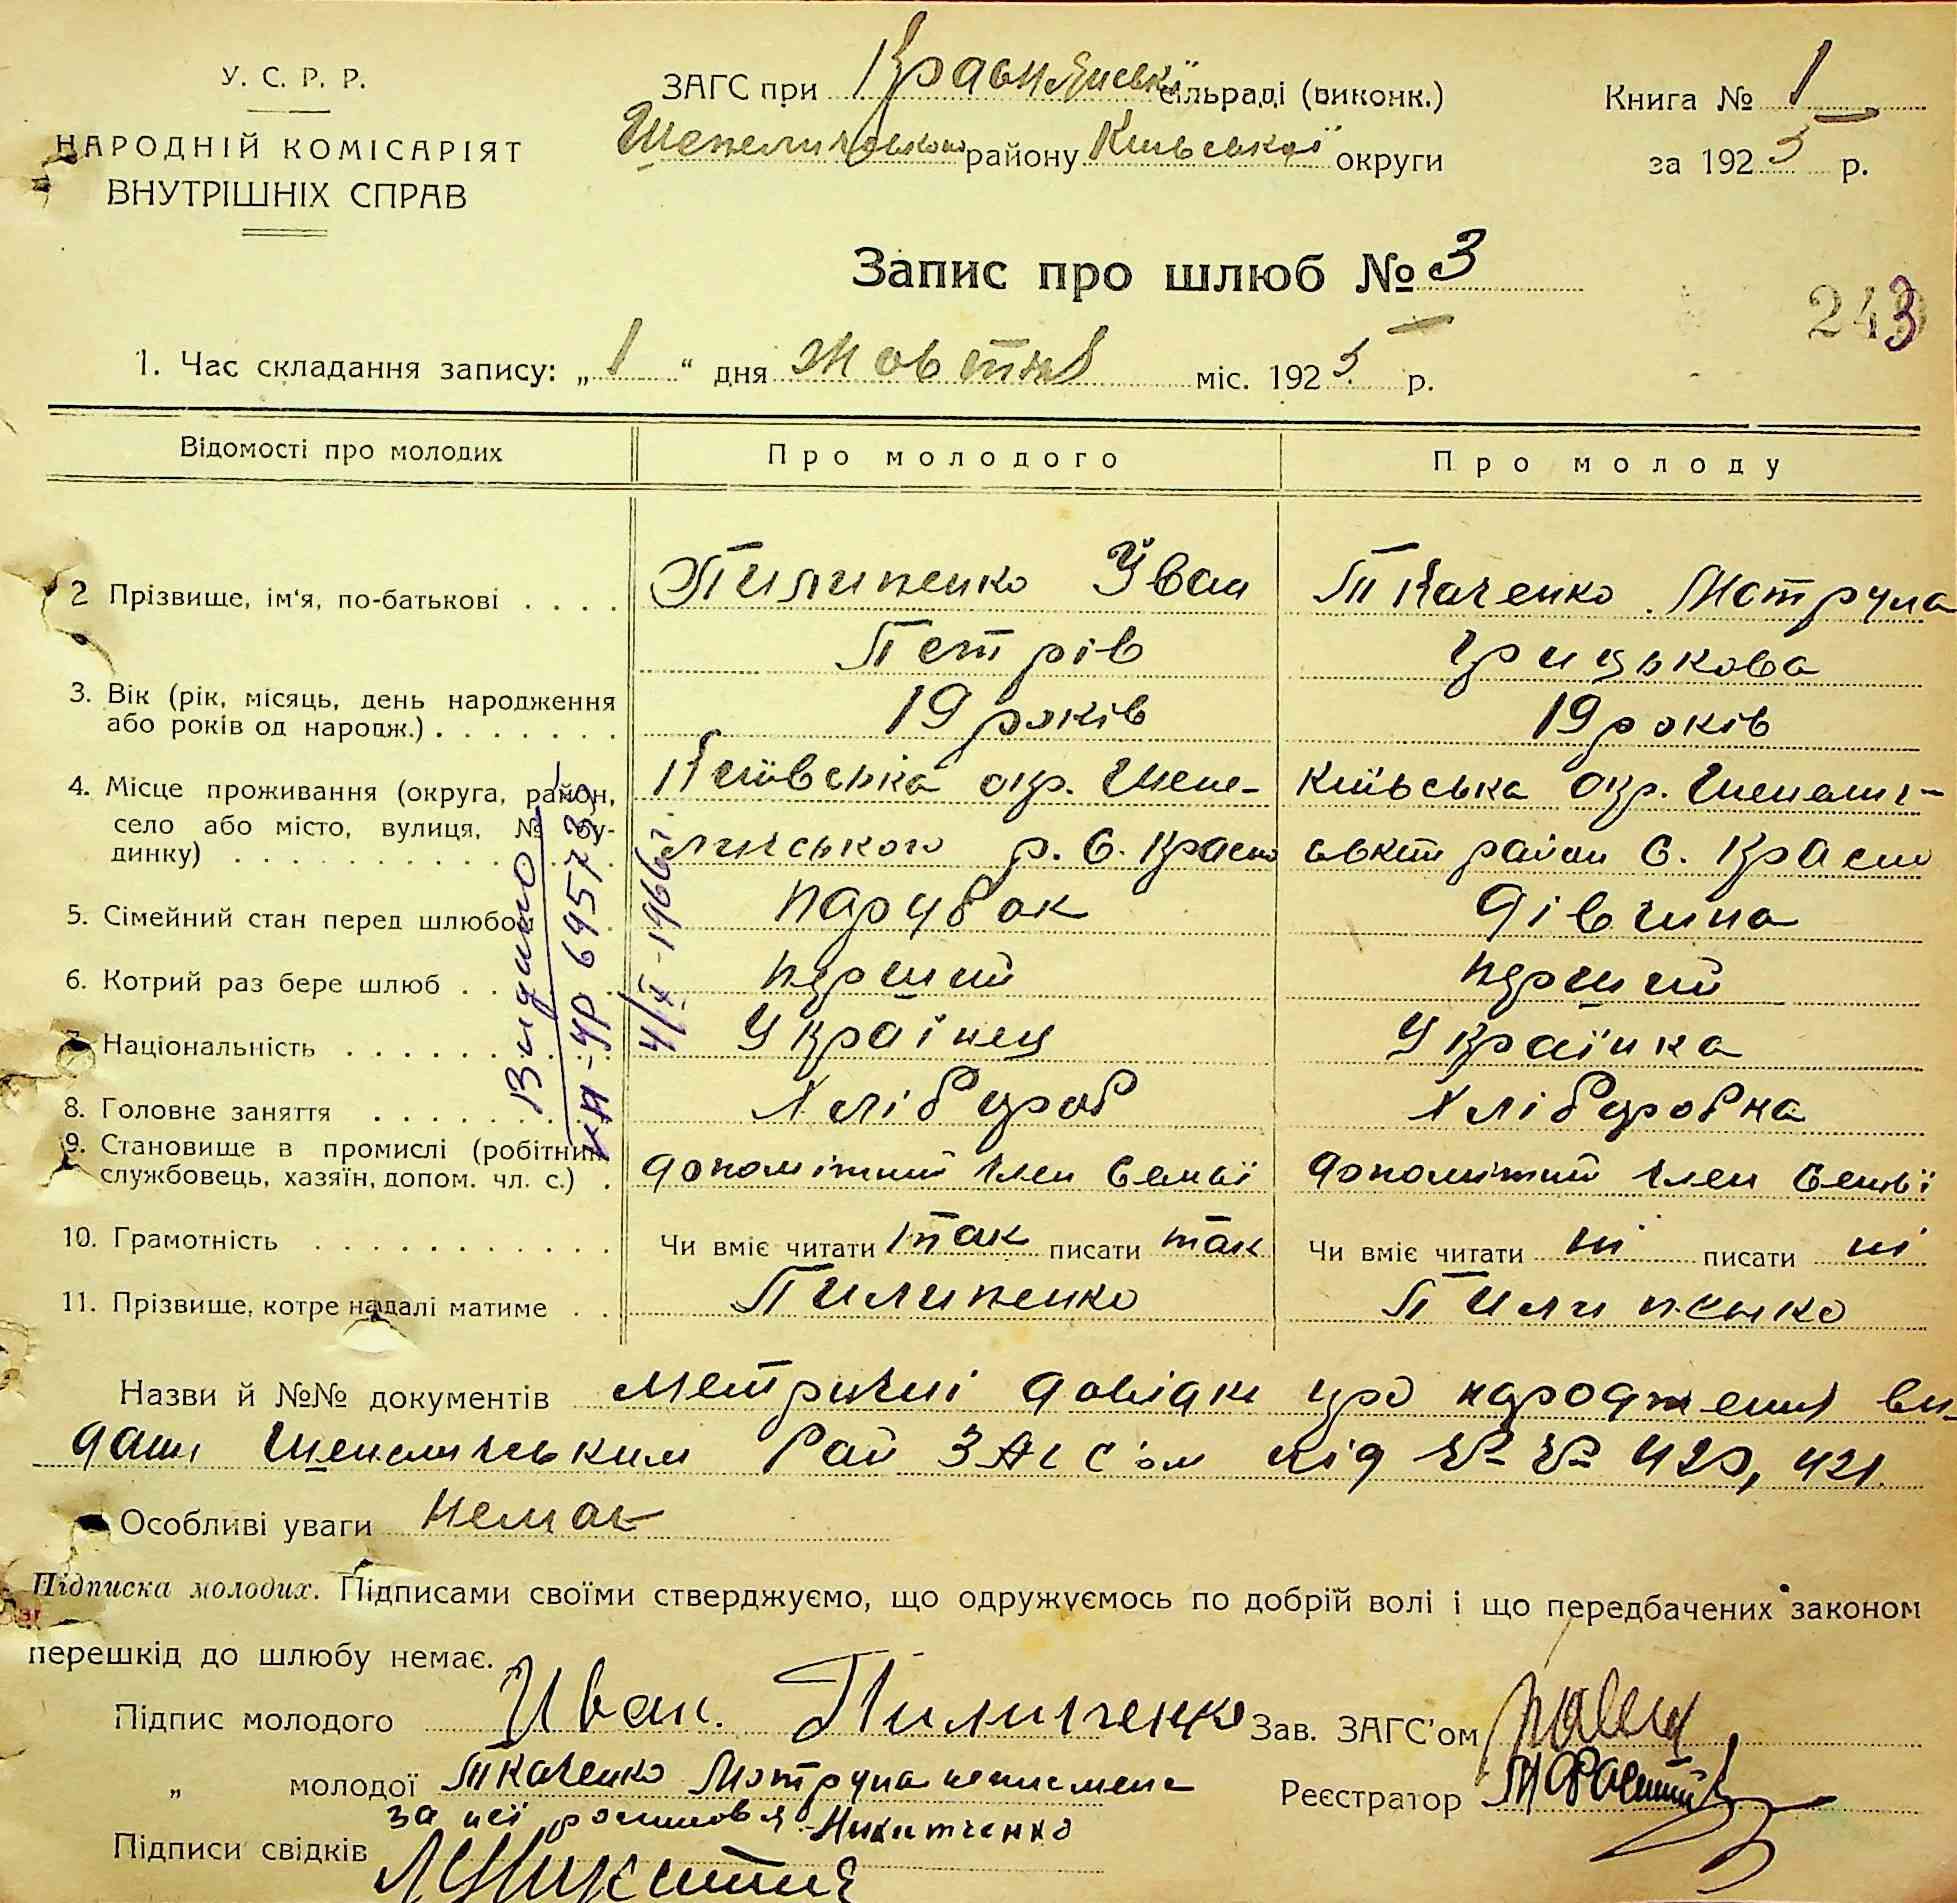 У. С. Р. Р.
НАРОДНІЙ КОМІСАРІЯТ
ВНУТРІШНІХ СПРАВ
ЗАГС при Краснянській сільраді (виконк.)
Шепелицького району Київської округи
Книга № 1
за 1925 р.
Запис про шлюб № 3
243
1. Час складання запису: „ 1 “ дня жовтня міс. 1925 р.
Відомості про молодих Про молодого Про молоду
2 Прізвище, ім'я, по-батькові . . . . Пилипенко Іван Петрів Ткаченко Мотруна Грицькова
3. Вік (рік, місяць, день народження
або років од народж.) . . . . . . . 19 років 19 років
4. Місце проживання (округа, район,
село або місто, вулиця, № бу-
динку) . . . . Київська окр. Шепе-
личського р. с. Красно Київська окр. Шепелич-
район с. Красно
5. Сімейний стан перед шлюбом парубок дівчина
6. Котрий раз бере шлюб . . перший перший
7. Національність . . . . . . . Українец Українка
8. Головне заняття . . . . . . Хлібороб Хлібороbка
9. Становище в промислі (робітник
службовець, хазяїн, допом. чл. с.) . допоміжний член семьї допоміжний член семьї
10. Грамотність . . . . . . . . . . . Чи вміє читати так писати так Чи вміє читати ні писати ні
11. Прізвище, котре надалі матиме . . Пилипенко Пилипенько
Видано
КА-УР 695735
4/X-1966г.
Назви й №№ документів метричні довідки про народження ви-
дані Шепеличським Рай ЗАГС'ом під №№ 420, 421.
Особливі уваги немає
Підписка молодих. Підписами своїми стверджуємо, що одружуємось по добрій волі і що передбачених законом
перешкід до шлюбу немає.
Підпис молодого Иван. Пилипченко Зав. ЗАГС'ом
„ молодої Ткаченко Мотруна неписмена Реєстратор
за неї росписовя Никитченко
Підписи свідків